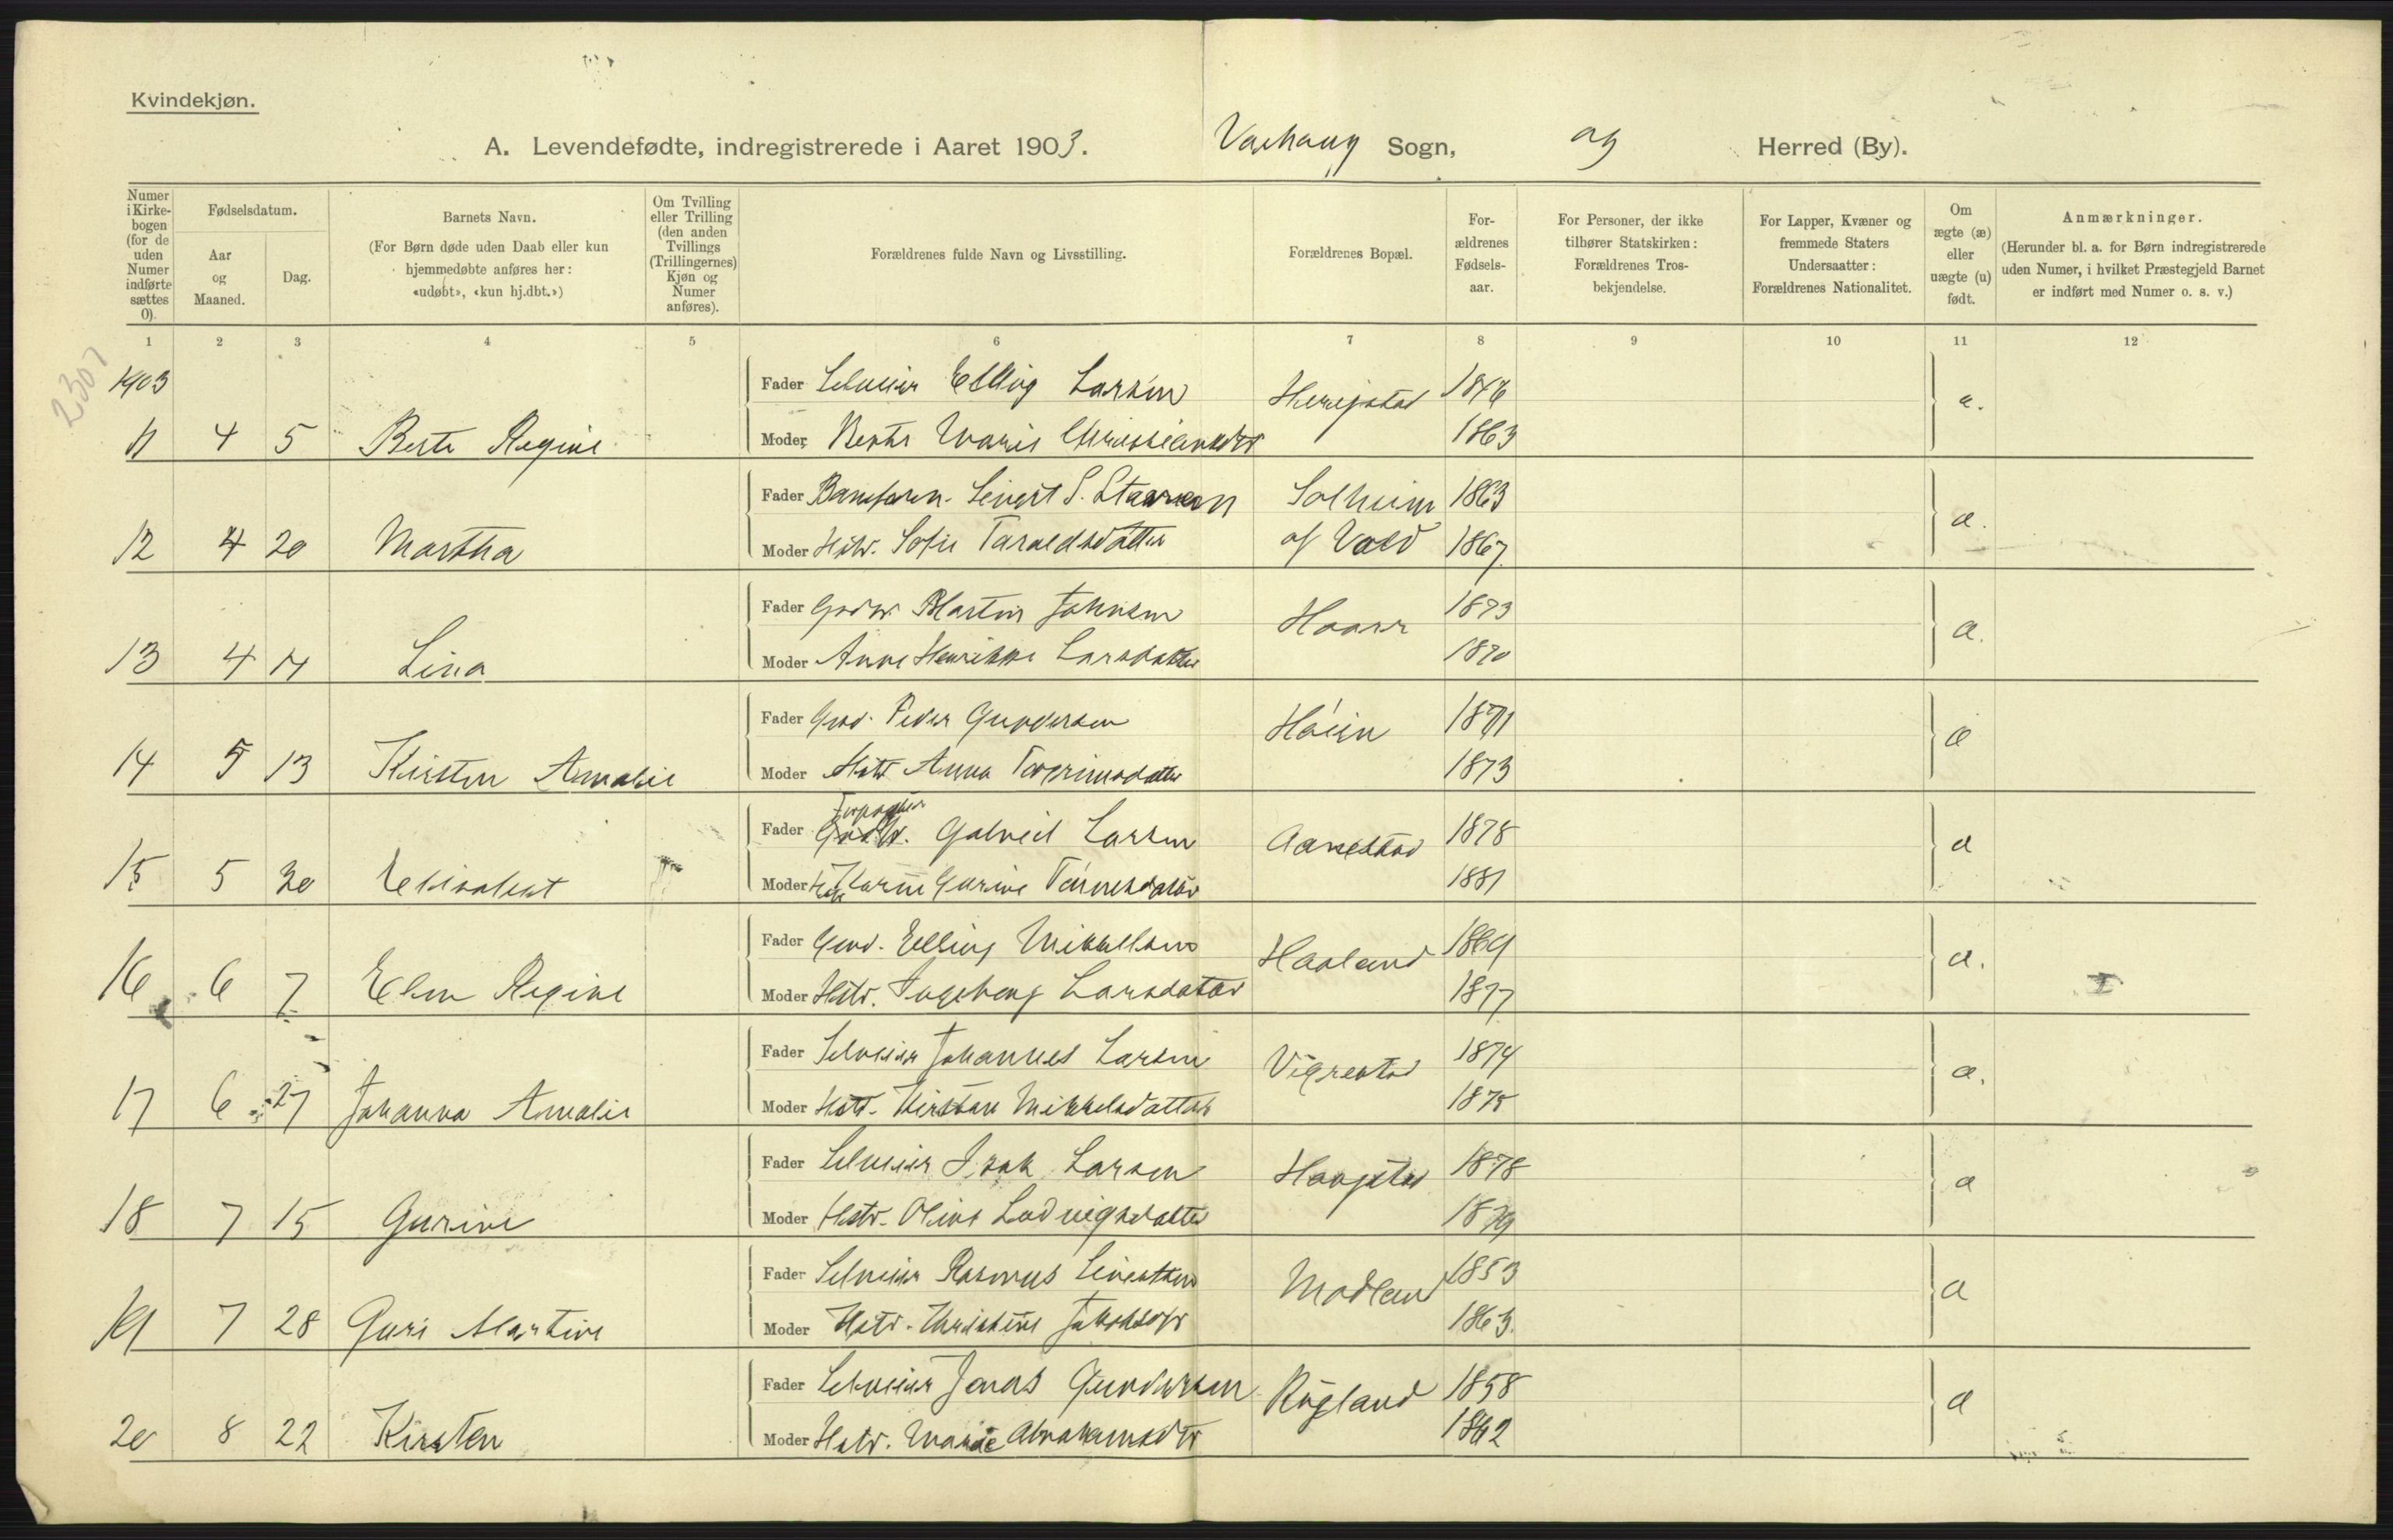 Kvindekjøn.
A. Levendefødte, indregistrerede i Aaret 1903. Varhaug Sogn, og Herred (By).
Numer i Kirke-bogen (for de uden Numer indførte sættes 0).
Fødselsdatum.
Aar og Maaned.
Dag.
Barnets Navn.
(For Børn døde uden Daab eller kun hjemmedøbte anføres her: «udøbt», «kun hj.dbt.»)
Om Tvilling eller Trilling (den anden Tvillings (Trillingernes) Kjøn og Numer anføres).
Forældrenes fulde Navn og Livsstilling.
Forældrenes Bopæl.
For-ældrenes Fødsels-aar.
For Personer, der ikke tilhører Statskirken: Forældrenes Tros-bekjendelse.
For Lapper, Kvæner og fremmede Staters Undersaatter: Forældrenes Nationalitet.
Om ægte (æ) eller uægte (u) født.
Anmærkninger.
(Herunder bl. a. for Børn indregistrerede uden Numer, i hvilket Præstegjeld Barnet er indført med Numer o. s. v.)
1 2 3 4 5 6 7 8 9 10 11 12
2307
1903
Fader Selveier Elling Larsen 1846
11 4 5 Berte Regine Moder Berte Marie Christiansdtr 1863 æ.
Fader Baneform. Sivert S. Solheim 1863
12 4 20 Martha Moder Hstr. Sofie Taraldsdatter af Vold 1867 æ.
Fader Grdbr Martin Johnsen Haarr 1873
13 4 17 Lina Moder Anne Henrikke Larsdatter 1870 æ.
Fader Grdbr. Peder Gundersen Høien 1871
14 5 13 Kirsten Amalie Moder Hstr Anna Torgrimsdatter 1873 æ
Forpagter
Fader Gabriel Larsen Aanestad 1878
15 5 30 Elisabet Moder Hstr Karen Gurine Tønnesdatter 1881 æ
Fader Grdbr. Elling Mikkelsen Haaland 1869
16 6 7 Elen Regine Moder Hstr. Ingeborg Larsdatter 1877 æ.
Fader Selveier Johannes Larsen Vigrestad 1874
17 6 27 Johanna Amalie Moder Hstr. Kirsten Mikkelsdatter 1875 æ.
Fader Selveier Isak Larsen Haugstad 1878
18 7 15 Gurine Moder Hstr. Oline Ludvigsdatter 1879 æ
Fader Selveier Rasmus Sivertsen Modland 1853
19 7 28 Guri Martine Moder Hstr. Christine Jakobsdtr 1863. æ
Fader Selveier Jonas Gundersen Rugland 1858
20 8 22 Kirsten Moder Hstr. Marie Abrahamsdtr 1862 æ